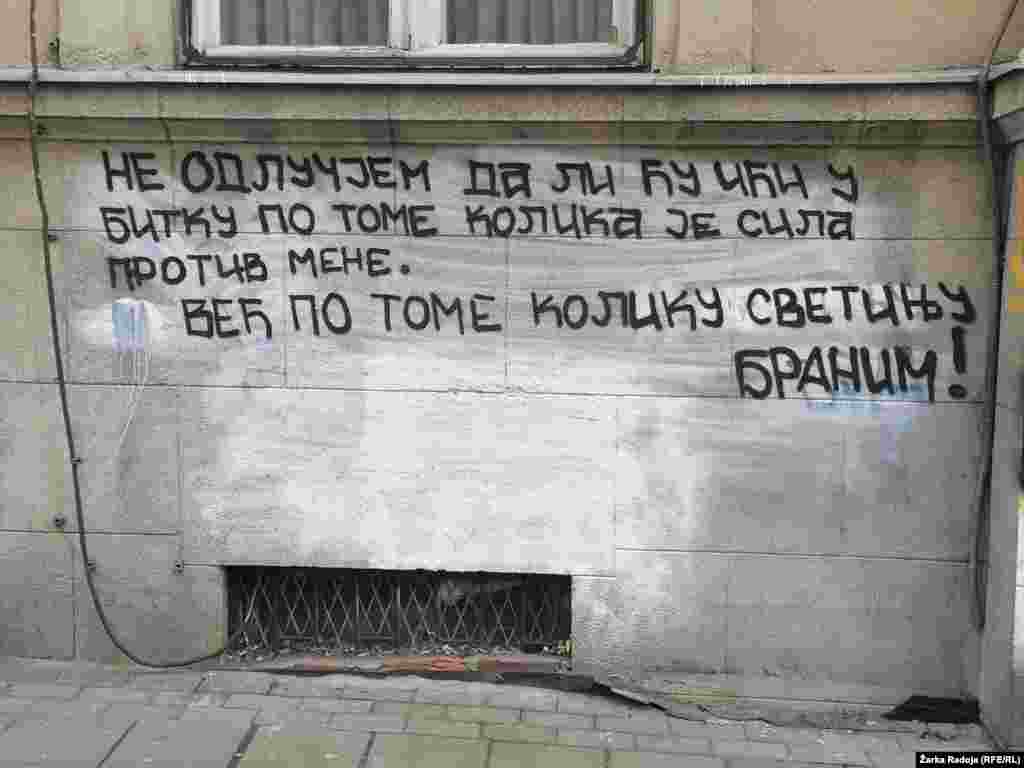 НЕ ОДЛУЧЈЕМ ДА ЛИ ЋУ ИЋИ У
БИТКУ ПО ТОМЕ КОЛИКА ЈЕ СИЛА
ПРОТИВ МЕНЕ.
ВЕЋ ПО ТОМЕ КОЛИКУ СВЕТИЊУ
БРАНИМ!
Žarka Radoja (RFE/RL)